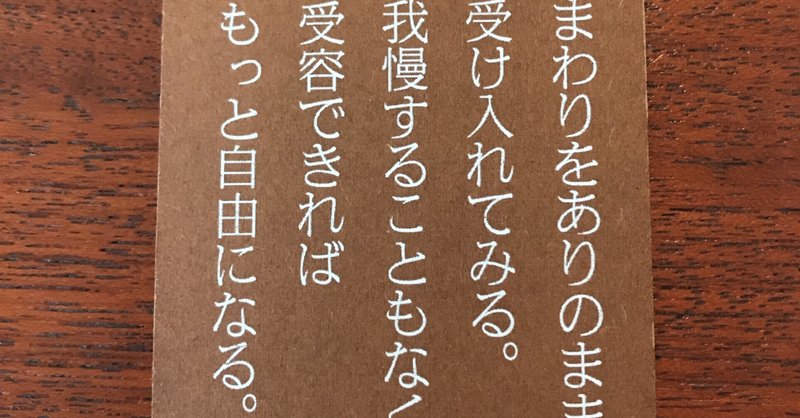 まわりをありのまま
受け入れてみる。
我慢することもなく
受容できれば
もっと自由になる。